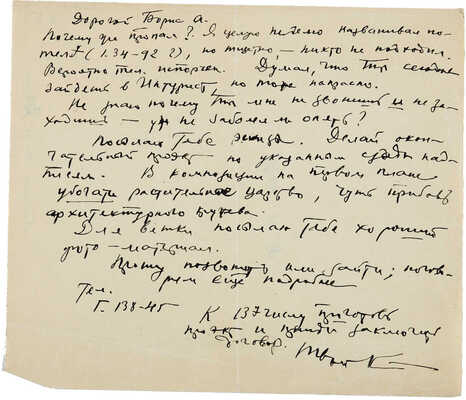 Дорогой Борис А.
Почему ты пропал? Я целую неделю названивал по
тел. (1.34-92?), но тщетно, никто не подходил.
Вероятно тел. испорчен. Думал, что Ты сегодня
зайдешь в Интурист, но тоже напрасно.
Не знаю почему Ты мне не звонишь и не за-
ходишь – уж не заболел ли опять?
Посылаю Тебе эскиз. Делай окон-
чательный проект по указанным сюда над-
писям. В композиции на первом плане
убогати растительное царство, чуть прибавь
архитектурного кружева.
Для ветки посылаю Тебе хороший
фото-материал.
Прошу позвонить или зайти; погово-
рим ещё подробнее
Тел.
Г. 138-45
К 13 числу приготовь
проект и приходи заключать
договор.